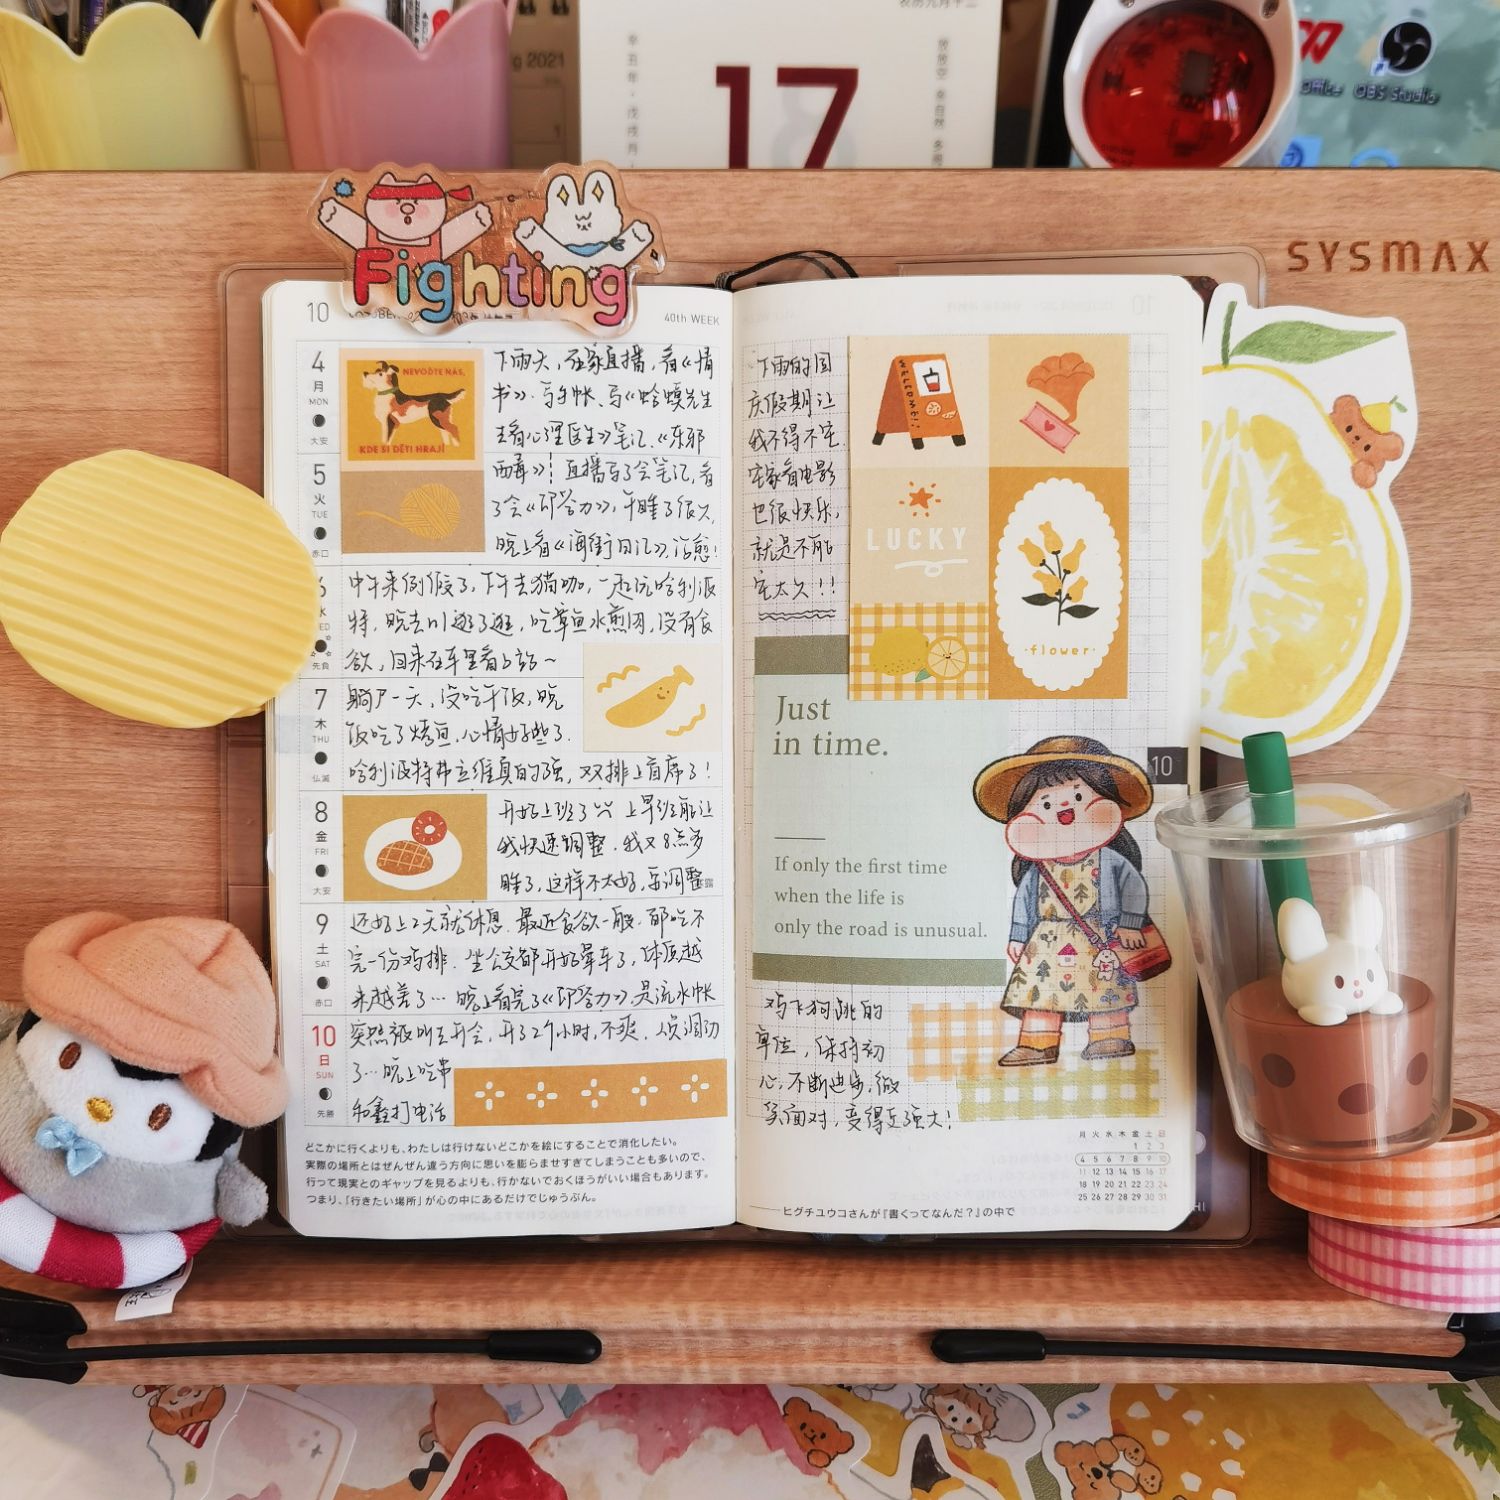 2021
农历九月十二
辛丑年·戊戌月
17
Office OBS Studio
SYSMAX
Fighting
10
40th WEEK
4
月
MON
大安
NEVOĎTE NÁS,
KDE SI DĚTI HRAJÍ
下雨天，在家直播，看《情
书》、写手帐、写《蛤蟆先生
去看心理医生》笔记、《东邪
5
火
TUE
赤口
西毒》！直播写了会笔记，看
了会《即答力》，午睡了很久
晚上看《海街日记》，治愈！
6
先負
中午来例假了，下午去猫咖，一起玩哈利波
特，晚去川逛了逛，吃草鱼水煎肉，没有食
欲，回来在车里看了站～
7
木
THU
仏滅
躺尸一天，没吃午饭，晚
饭吃了烤鱼，心情好些了
哈利波特弗立维真的强，双排上首席了！
8
金
FRI
大安
开始上班了 上早班能让
我快速调整，我又8点多
睡了，这样不太好，再调整
9
土
SAT
赤口
还好上2天就休息，最近食欲一般，都吃不
完一份鸡排，坐公交都开始晕车了，体质越
来越差了… 晚上看完了《即答力》，是流水帐
10
日
SUN
先勝
突然被叫去开会，开了2个小时，不爽，人员调动
了… 晚上吃串
和鑫打电话
どこかに行くよりも、わたしは行けないどこかを絵にすることで消化したい。
実際の場所とはぜんぜん違う方向に思いを膨らませすぎてしまうことも多いので、
行って現実とのギャップを見るよりも、行かないでおくほうがいい場合もあります。
つまり、「行きたい場所」が心の中にあるだけでじゅうぶん。
下雨的国
庆假期让
我不得不宅
宅家看电影
也很快乐，
就是不能
宅太久！！
WELCOME!!
LUCKY
·flower·
Just
in time.
If only the first time
when the life is
only the road is unusual.
10
鸡飞狗跳的
单位，保持初
心，不断进步，微
笑面对，变得更强大！
月 火 水 木 金 土 日
1 2 3
4 5 6 7 8 9 10
11 12 13 14 15 16 17
18 19 20 21 22 23 24
25 26 27 28 29 30 31
ヒグチユウコさんが『書くってなんだ？』の中で